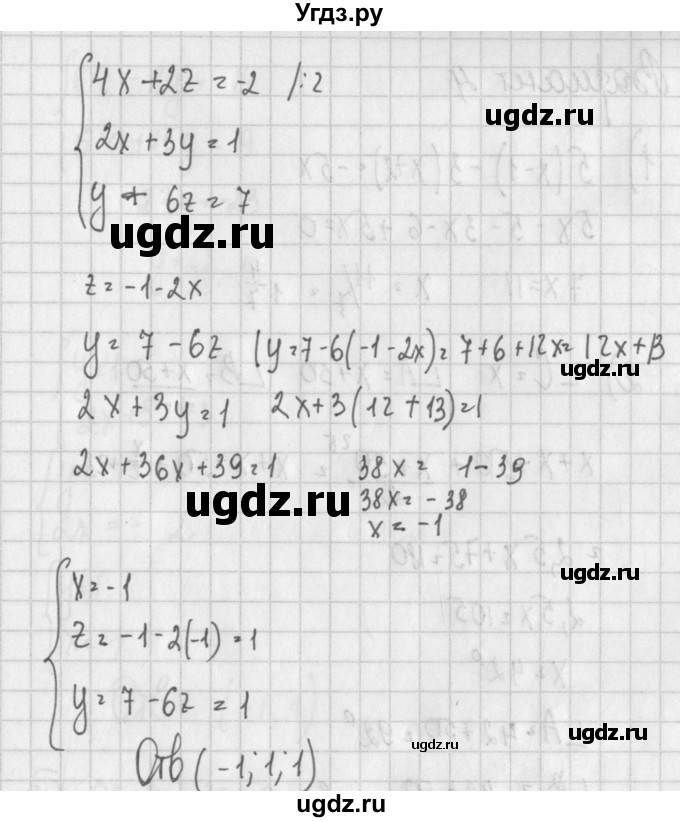 Угдз.ру
4x + 2z = -2 /:2
2x + 3y = 1
y + 6z = 7
ugdz.ru
ugdz.ru
z = -1 - 2x
y = 7 - 6z (y = 7 - 6(-1 - 2x) = 7 + 6 + 12x = 12x + 13
ugdz.ru
2x + 3y = 1 2x + 3(12 + 13) = 1
2x + 36x + 39 = 1 38x = 1 - 39
ugdz.ru
38x = -38
x = -1
x = -1
ugdz.ru
z = -1 - 2(-1) = 1
y = 7 - 6z = 1
ugdz.ru
ugdz.ru
Отв (-1; 1; 1)
ugdz.ru